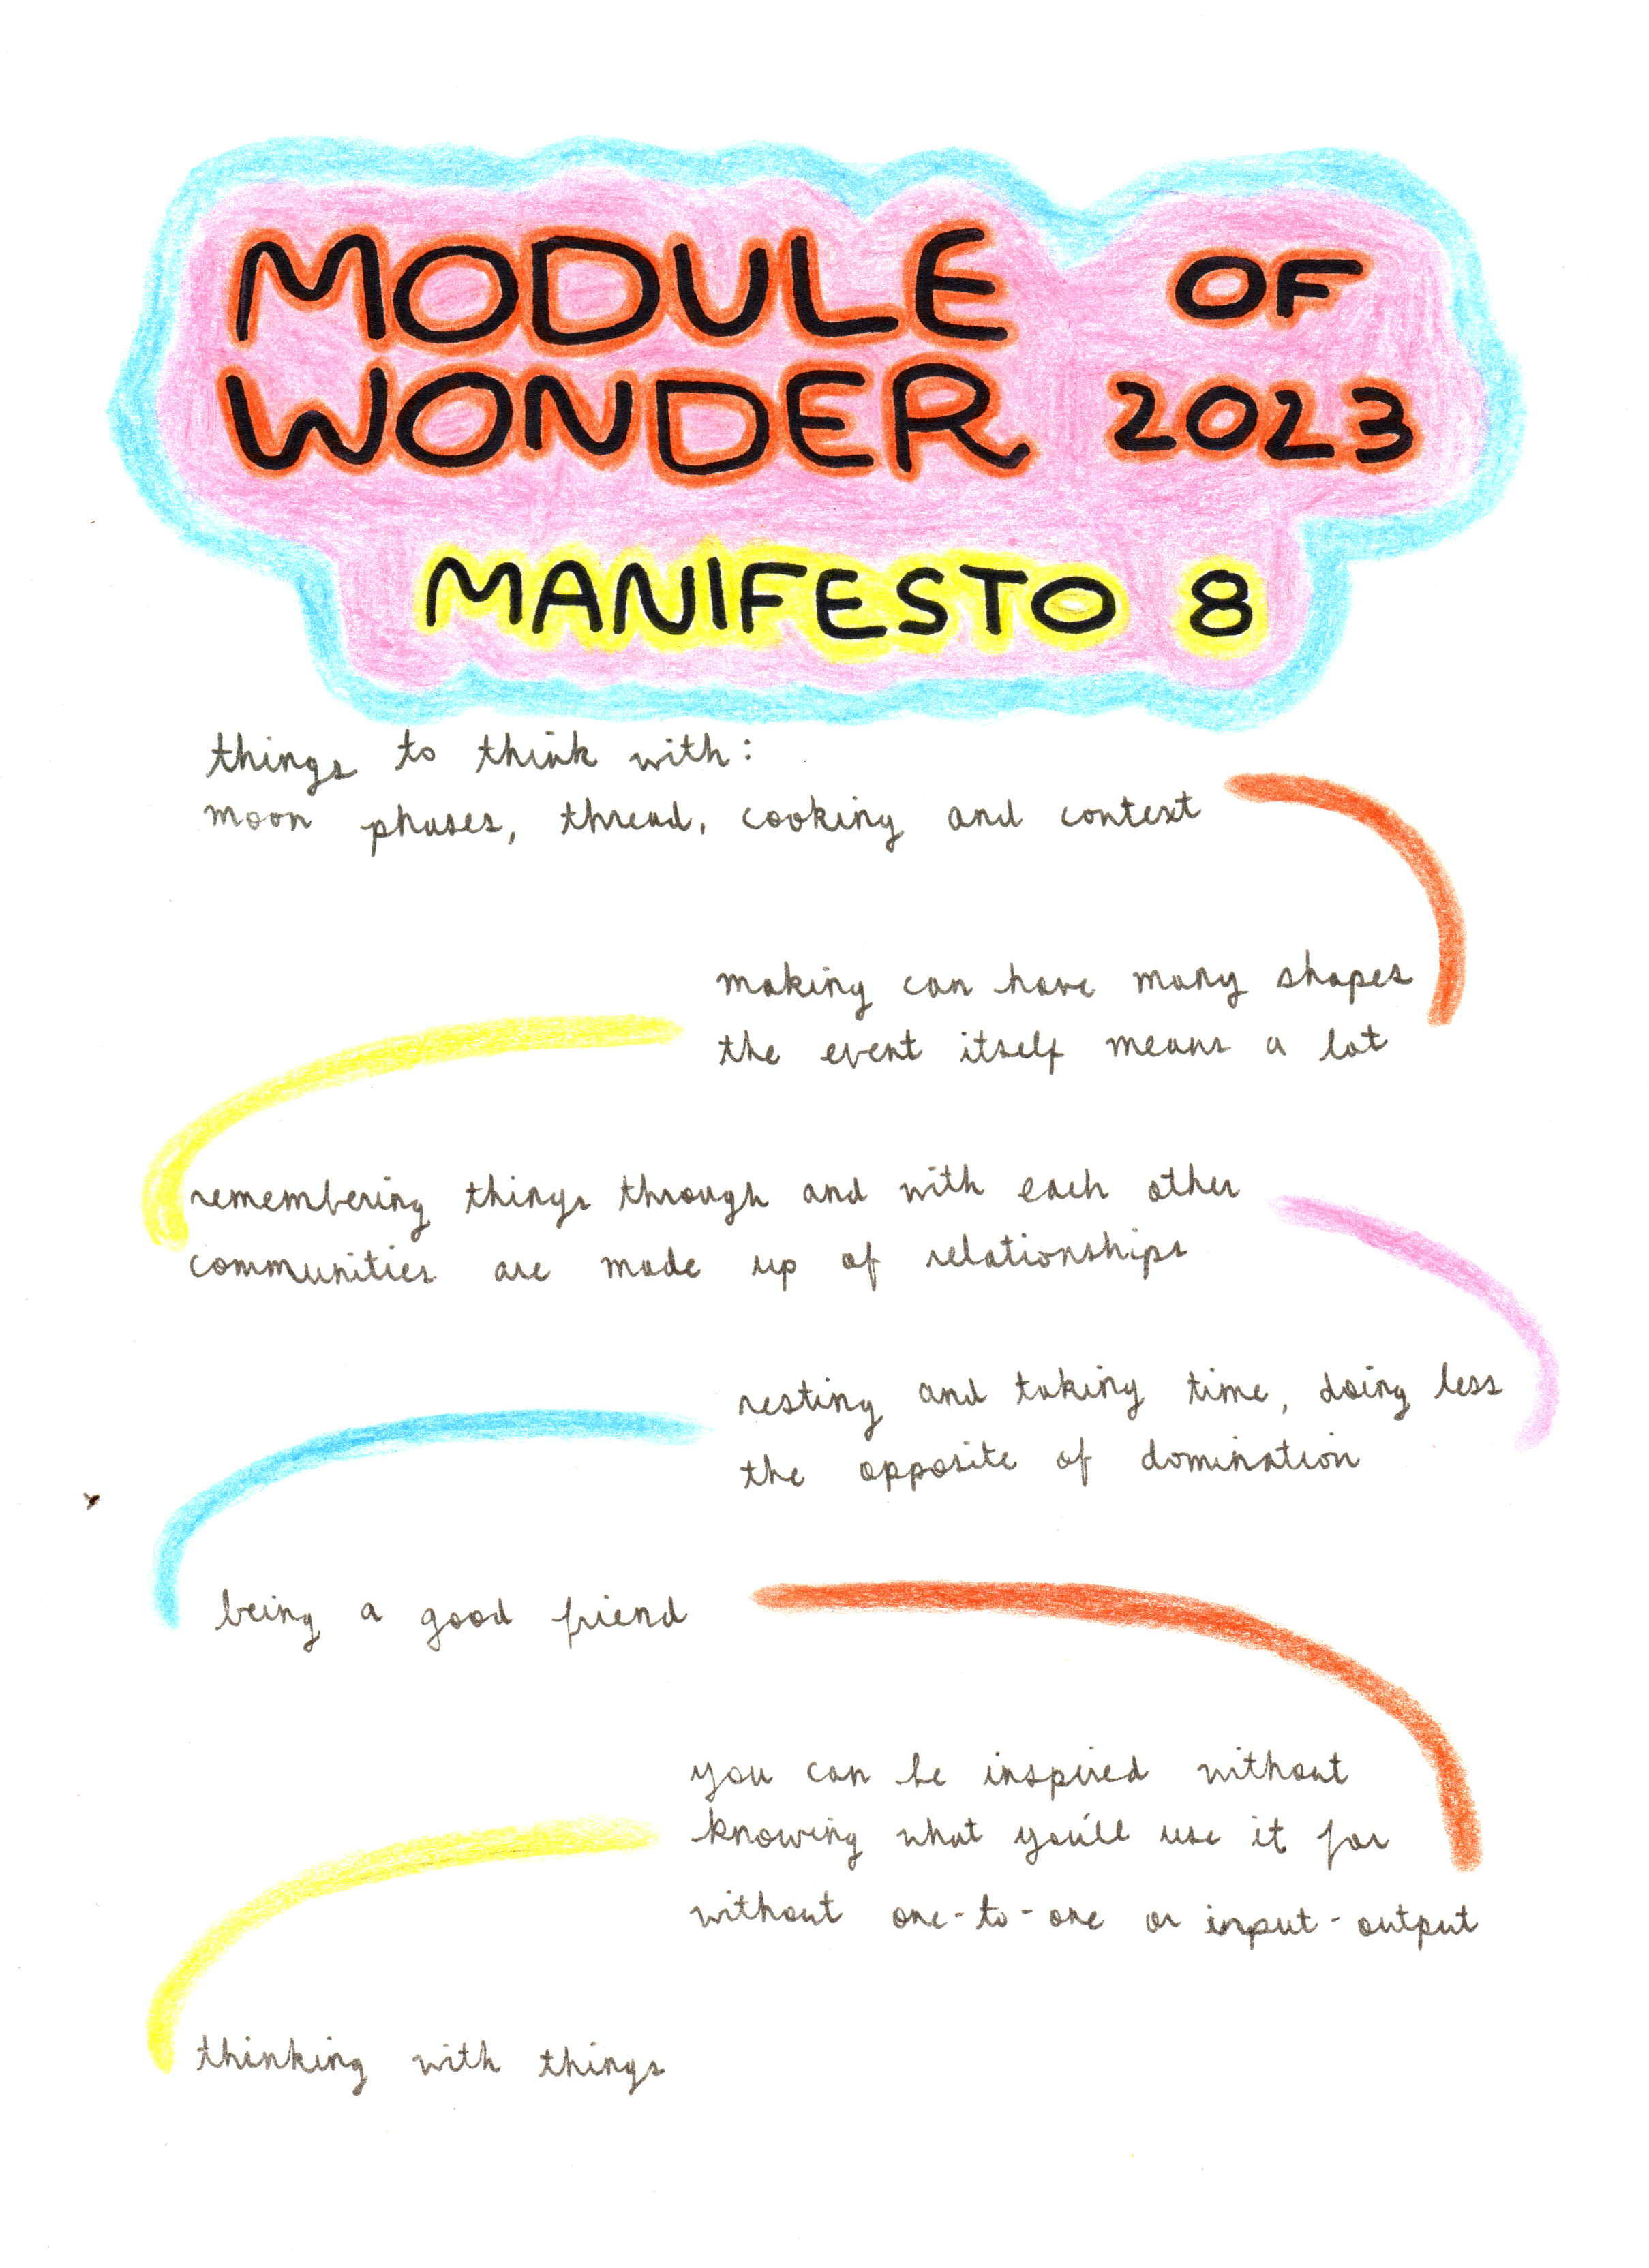 MODULE OF
WONDER 2023
MANIFESTO 8
things to think with:
moon phases, thread, cooking and context
making can have many shapes
the event itself means a lot
remembering things through and with each other
communities are made up of relationships
resting and taking time, doing less
the opposite of domination
being a good friend
you can be inspired without
knowing what you'll use it for
without one-to-one or input-output
thinking with things